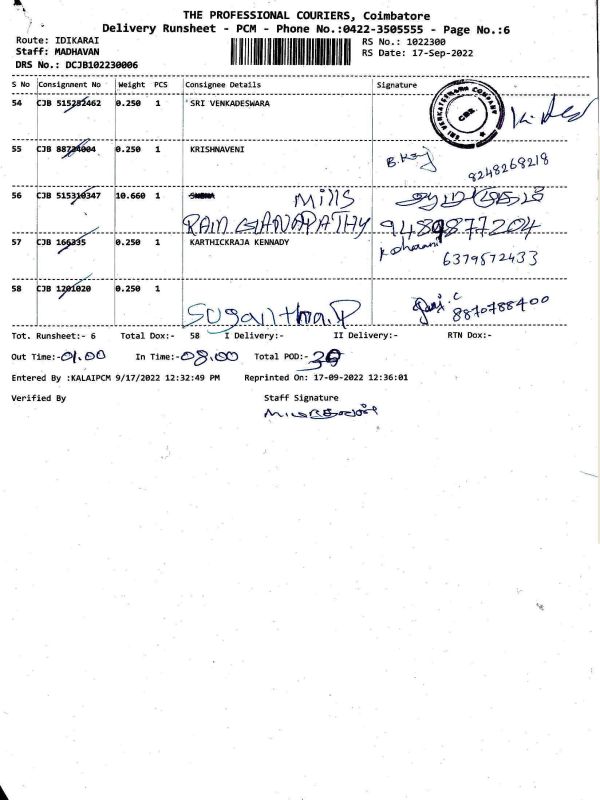 THE PROFESSIONAL COURIERS, Coimbatore
Delivery Runsheet - PCM - Phone No.:0422-3505555 - Page No.:6
Route: IDIKARAI RS No.: 1022300
Staff: MADHAVAN RS Date: 17-Sep-2022
DRS No.: DCJB102230006
S No Consignment No Weight PCS Consignee Details Signature
54 CJB 515252462 0.250 1 SRI VENKADESWARA
SRI VENKATESWARA COMPANY CBE
55 CJB 88734004 0.250 1 KRISHNAVENI
8248268218
56 CJB 515310347 10.660 1 Mills
RAM GANAPATHY
57 CJB 166335 0.250 1 KARTHICKRAJA KENNADY
6379572433
58 CJB 1201020 0.250 1
8870788400
Tot. Runsheet:- 6 Total Dox:- 58 I Delivery:- II Delivery:- RTN Dox:-
Out Time:-01.00 In Time:-08.00 Total POD:-
Entered By :KALAIPCM 9/17/2022 12:32:49 PM Reprinted On: 17-09-2022 12:36:01
Verified By Staff Signature